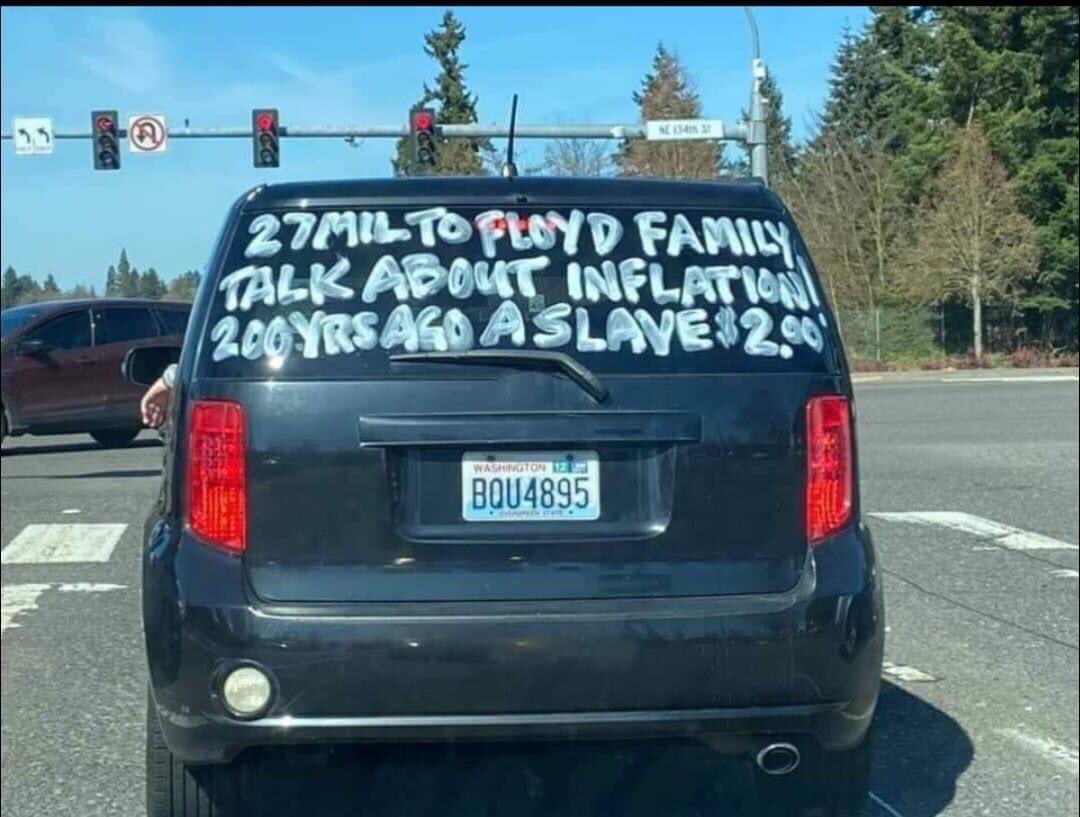 NE 134th St
27MIL TO FLOYD FAMILY
TALK ABOUT INFLATION!
200 YRS AGO A SLAVE $2.00
WASHINGTON 12
BQU4895
EVERGREEN STATE